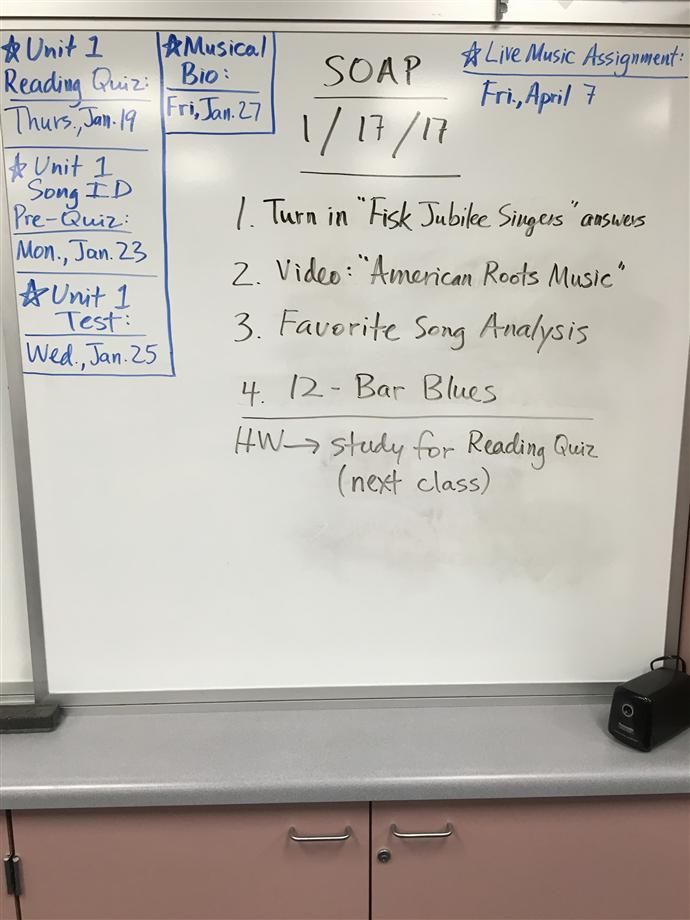 ☆Unit 1
Reading Quiz:
Thurs., Jan. 19
☆Unit 1
Song ID
Pre-Quiz:
Mon., Jan. 23
☆Unit 1
Test:
Wed., Jan. 25
☆Musical
Bio:
Fri, Jan. 27
SOAP
1/17/17
☆Live Music Assignment:
Fri., April 7
1. Turn in "Fisk Jubilee Singers" answers
2. Video: "American Roots Music"
3. Favorite Song Analysis
4. 12-Bar Blues
HW→ study for Reading Quiz
(next class)